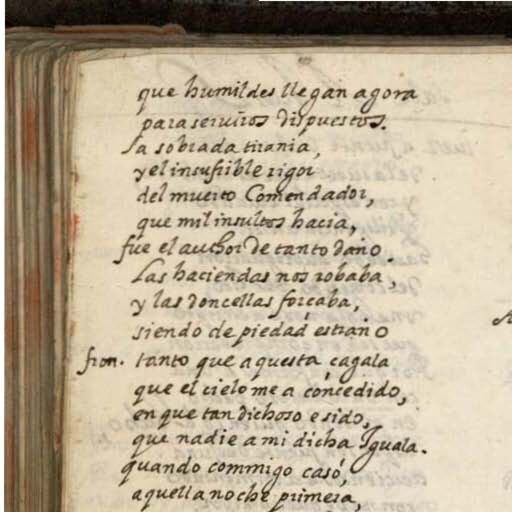 que humildes llegan agora
para serviros dispuestos.
La sobrada tirania,
y el insufrible rigor
del muerto Comendador,
que mil insultos hacia,
fue el author de tanto daño.
Las haciendas nos robaba,
y las doncellas forçaba,
siendo de piedad estraño
fron. tanto que aquesta çagala
que el cielo me a concedido,
en que tan dichoso e sido,
que nadie a mi dicha Iguala.
quando commigo casó,
aquella noche primera,